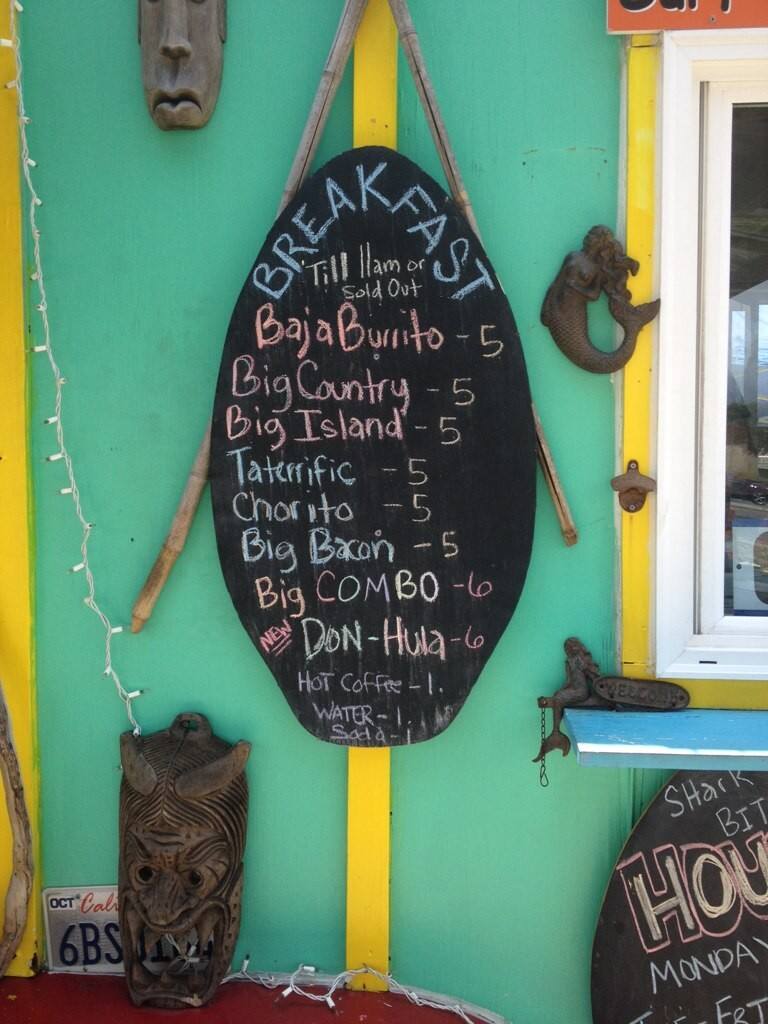 BREAKFAST
'Till 11am or
Sold Out
Baja Burrito - 5
Big Country - 5
Big Island - 5
Taterrific - 5
Chorito - 5
Big Bacon - 5
Big COMBO - 6
NEW DON-Hula - 6
HOT Coffee - 1.
WATER - 1.
Soda - 1
WELCOME
OCT Cali
6BS
Shark
BIT
HOU
MONDAY